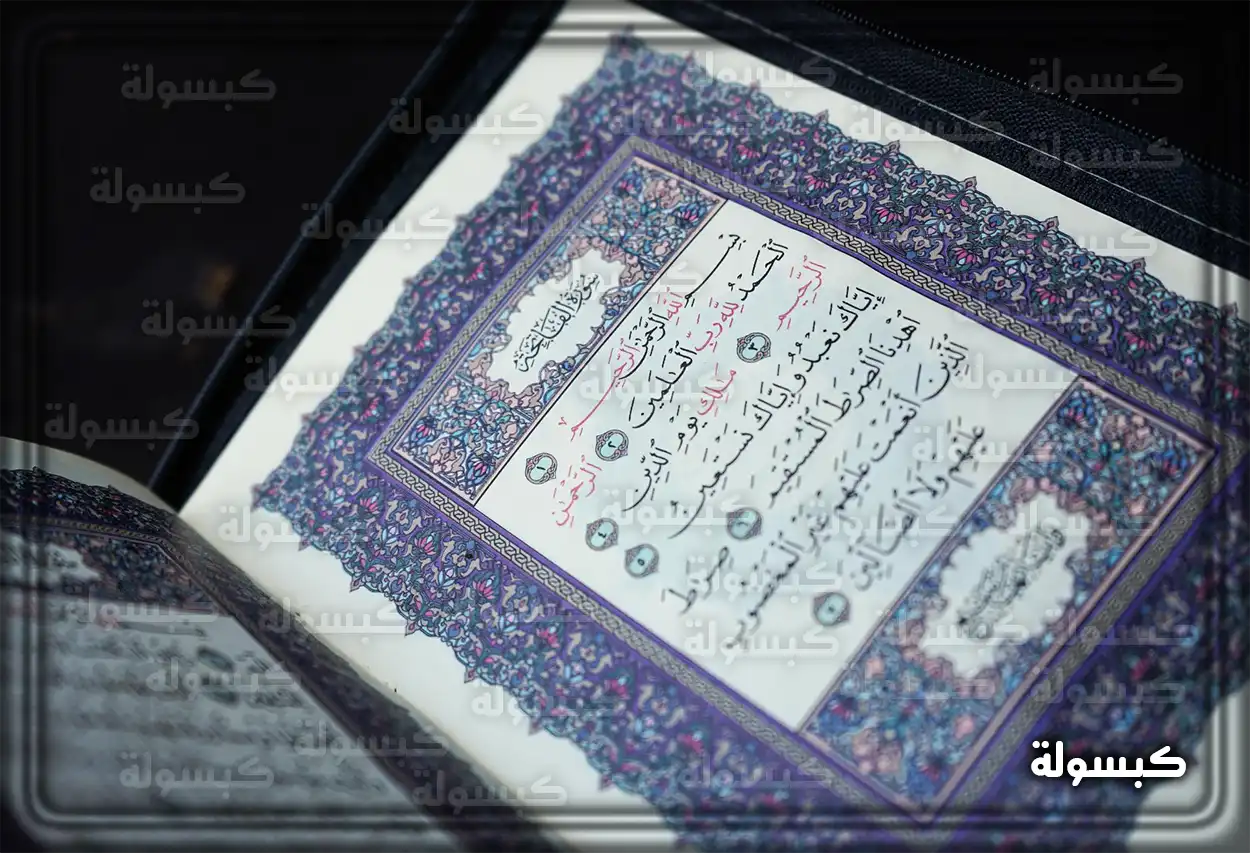 سُورَةُ الْفَاتِحَةِ
بِسْمِ ٱللَّهِ ٱلرَّحْمَٰنِ ٱلرَّحِيمِ ١
ٱلْحَمْدُ لِلَّهِ رَبِّ ٱلْعَٰلَمِينَ ٢ ٱلرَّحْمَٰنِ
ٱلرَّحِيمِ ٣ مَٰلِكِ يَوْمِ ٱلدِّينِ ٤
إِيَّاكَ نَعْبُدُ وَإِيَّاكَ نَسْتَعِينُ ٥
ٱهْدِنَا ٱلصِّرَٰطَ ٱلْمُسْتَقِيمَ ٦ صِرَٰطَ
ٱلَّذِينَ أَنْعَمْتَ عَلَيْهِمْ غَيْرِ ٱلْمَغْضُوبِ
عَلَيْهِمْ وَلَا ٱلضَّآلِّينَ ٧
كبسولة